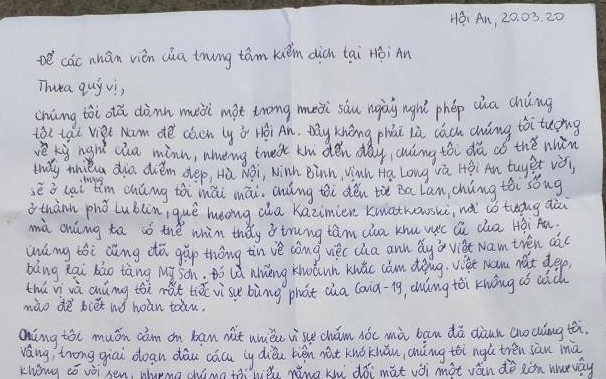 Hội An, 20.03.20
Để các nhân viên của trung tâm kiểm dịch tại Hội An
Thưa quý vị,
Chúng tôi đã dành mười một trong mười sáu ngày nghỉ phép của chúng
tôi tại Việt Nam để cách ly ở Hội An. Đây không phải là cách chúng tôi tượng
về kỳ nghỉ của mình, nhưng trước khi đến đây, chúng tôi đã có thể nhìn
thấy nhiều địa điểm đẹp, Hà Nội, Ninh Bình, Vịnh Hạ Long và Hội An tuyệt vời,
sẽ ở lại trong tim chúng tôi mãi mãi. Chúng tôi đến từ Ba Lan, chúng tôi sống
ở thành phố Lublin, quê hương của Kazimierz Kwiatkowski, nơi có tượng đài
mà chúng ta có thể nhìn thấy ở trung tâm của khu vực cũ của Hội An.
Chúng tôi cũng đã gặp thông tin về công việc của anh ấy ở Việt Nam trên các
bảng tại bảo tàng Mỹ Sơn. Đó là những khoảnh khắc cảm động. Việt Nam rất đẹp,
thú vị và chúng tôi rất tiếc vì sự bùng phát của Covid-19, chúng tôi không có cách
nào để biết nó hoàn toàn.
Chúng tôi muốn cảm ơn bạn rất nhiều vì sự chăm sóc mà bạn đã dành cho chúng tôi.
Vâng, trong giai đoạn đầu cách ly điều kiện rất khó khăn, chúng tôi ngủ trên sàn mà
không có vòi sen, nhưng chúng tôi hiểu rằng khi đối mặt với một vấn đề lớn như vậy